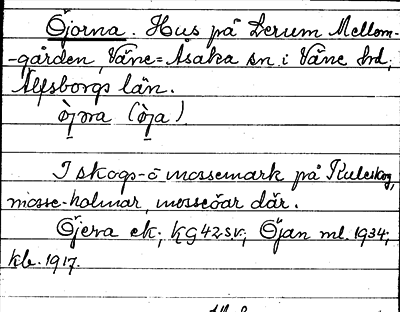 Öjorna. Hus på Lerum Mellom-
-gården, Väne-Åsaka sn i Väne hd,
Älfsborgs län.
òjɷra (òja)
I skogs- o mossemark på Kuleskog,
mosse-holmar, mosseöar där.
Öjerna ek; KG42SV; Öjan ml. 1934;
klb. 1917.